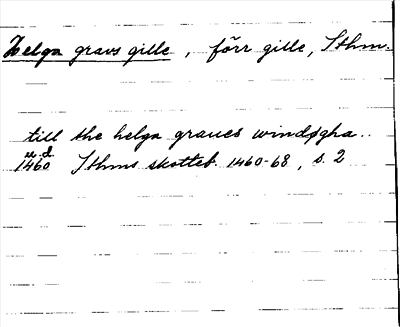 Helga gravs gille, förr gille, Sthm.
till the helga graues windøgha..
u.d.
1460 Sthms skotteb. 1460-68, s. 2